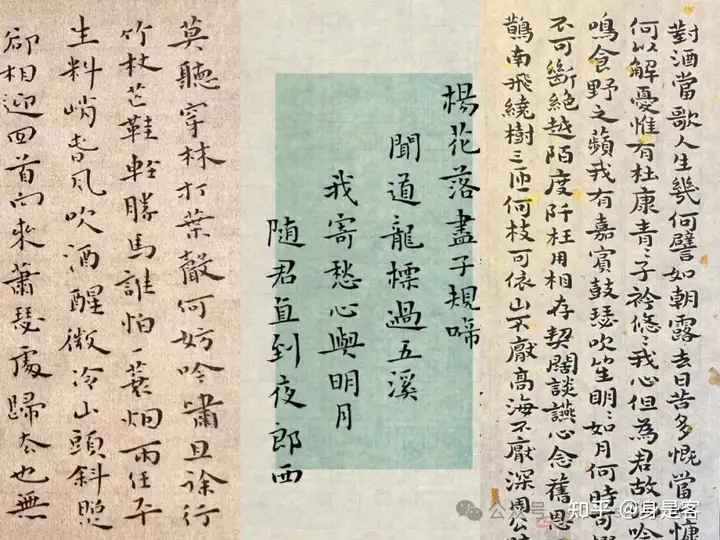 對酒當歌人生幾何譬如朝露去日苦多慨當慷
何以解憂惟有杜康青〻子衿悠〻我心但為君故沉吟
鳴食野之蘋我有嘉賓鼓瑟吹笙明〻如月何時可
不可斷絕越陌度阡枉用相存契闊談讌心念舊恩
鵲南飛繞樹三匝何枝可依山不厭高海不厭深周公
楊花落盡子規啼
聞道龍標過五溪
我寄愁心與明月
隨君直到夜郎西
莫聽穿林打葉聲何妨吟嘯且徐行
竹杖芒鞋輕勝馬誰怕一蓑烟雨任平
生料峭春風吹酒醒微冷山頭斜照
卻相迎回首向來蕭瑟處歸去也無
公众号
知乎 @身是客